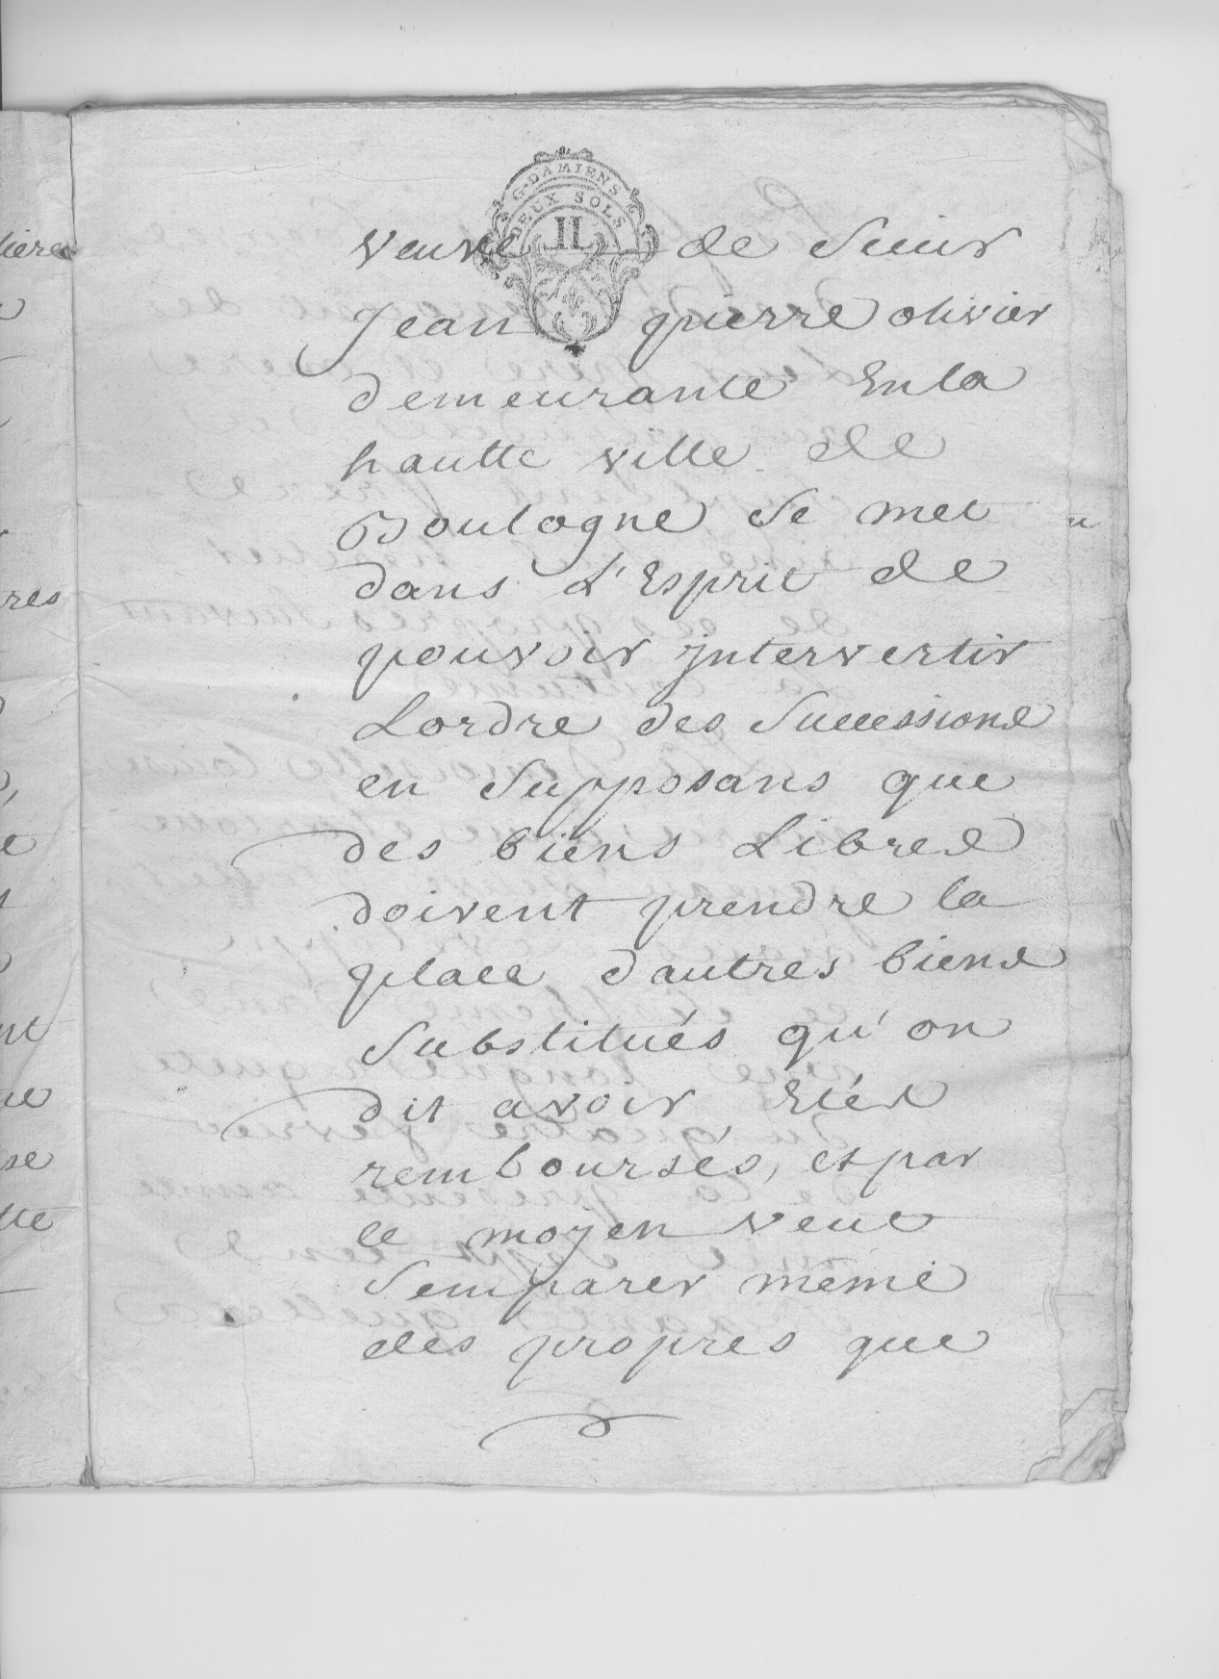 G. DAMIENS
DEUX SOLS
II
veuve de Sieur
Jean pierre olivier
demeurante En la
hautte ville de
Boulogne se met
dans L'Esprit de
pouvoir jntervertir
Lordre des Successions
en Supposans que
des biens Libres
doivent prendre la
place dautres biens
Substitués qu'on
dit avoir Etés
remboursés, et par
ce moyen veut
Semparer même
des propres que